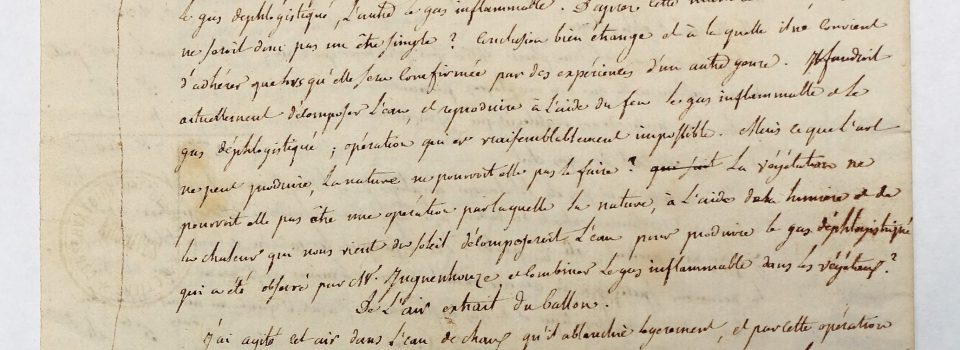 le gas déphlogistiqué, l'autre le gas inflammable. D'après cette
ne seroit donc pas un être simple? Conclusion bien étrange et à la quelle il ne convient
d'adhérer que lors qu'elle sera confirmée par des expériences d'un autre genre. Il faudroit
actuellement décomposer l'eau, et reproduire à l'aide du feu le gas inflammable et le
gas déphlogistiqué; opération qui est vraisemblablement impossible. Mais ce que l'art
ne peut produire, la nature ne pourroit elle pas le faire? qui sait La végétation ne
pourroit elle pas être une opération par laquelle la nature, à l'aide de la lumière et de
la chaleur qui nous vient du soleil décomposeroit l'eau pour produire le gas déphlogistiqué
qui a été observé par Mr. Ingenhouze et combiner le gas inflammable dans les végétaux?
De l'air extrait du ballon.
J'ai agité cet air dans l'eau de chaux qu'il a blanchie legerement, et par cette opération